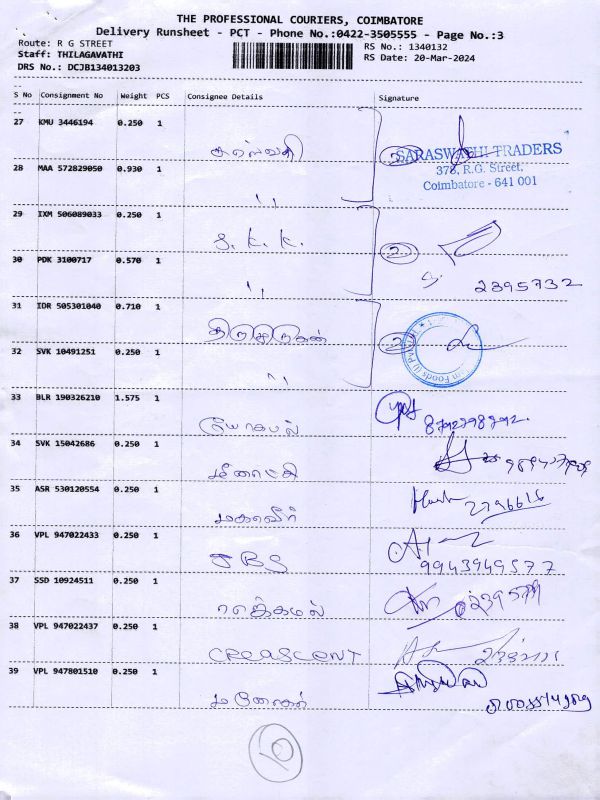 THE PROFESSIONAL COURIERS, COIMBATORE
Delivery Runsheet - PCT - Phone No.:0422-3505555 - Page No.:3
Route: R G STREET
RS No.: 1340132
Staff: THILAGAVATHI
RS Date: 20-Mar-2024
DRS No.: DCJB134013203
S No Consignment No Weight PCS Consignee Details Signature
27 KMU 3446194 0.250 1
SARASWATHI TRADERS
378, R.G. Street,
Coimbatore - 641 001
28 MAA 572829050 0.930 1
" "
29 IXM 506089033 0.250 1
S. K. K. 2
30 PDK 3100717 0.570 1
" " 2395732
31 IDR 505301040 0.710 1
திருமுருகன் 2
32 SVK 10491251 0.250 1
" "
33 BLR 190326210 1.575 1
ரியோகபல்
34 SVK 15042686 0.250 1
மீனாட்சி
35 ASR 530120554 0.250 1
மகாவீர் 2796616
36 VPL 947022433 0.250 1
JBS 9943949577
37 SSD 10924511 0.250 1
38 VPL 947022437 0.250 1
CREASCENT
39 VPL 947801510 0.250 1
மனோகர்